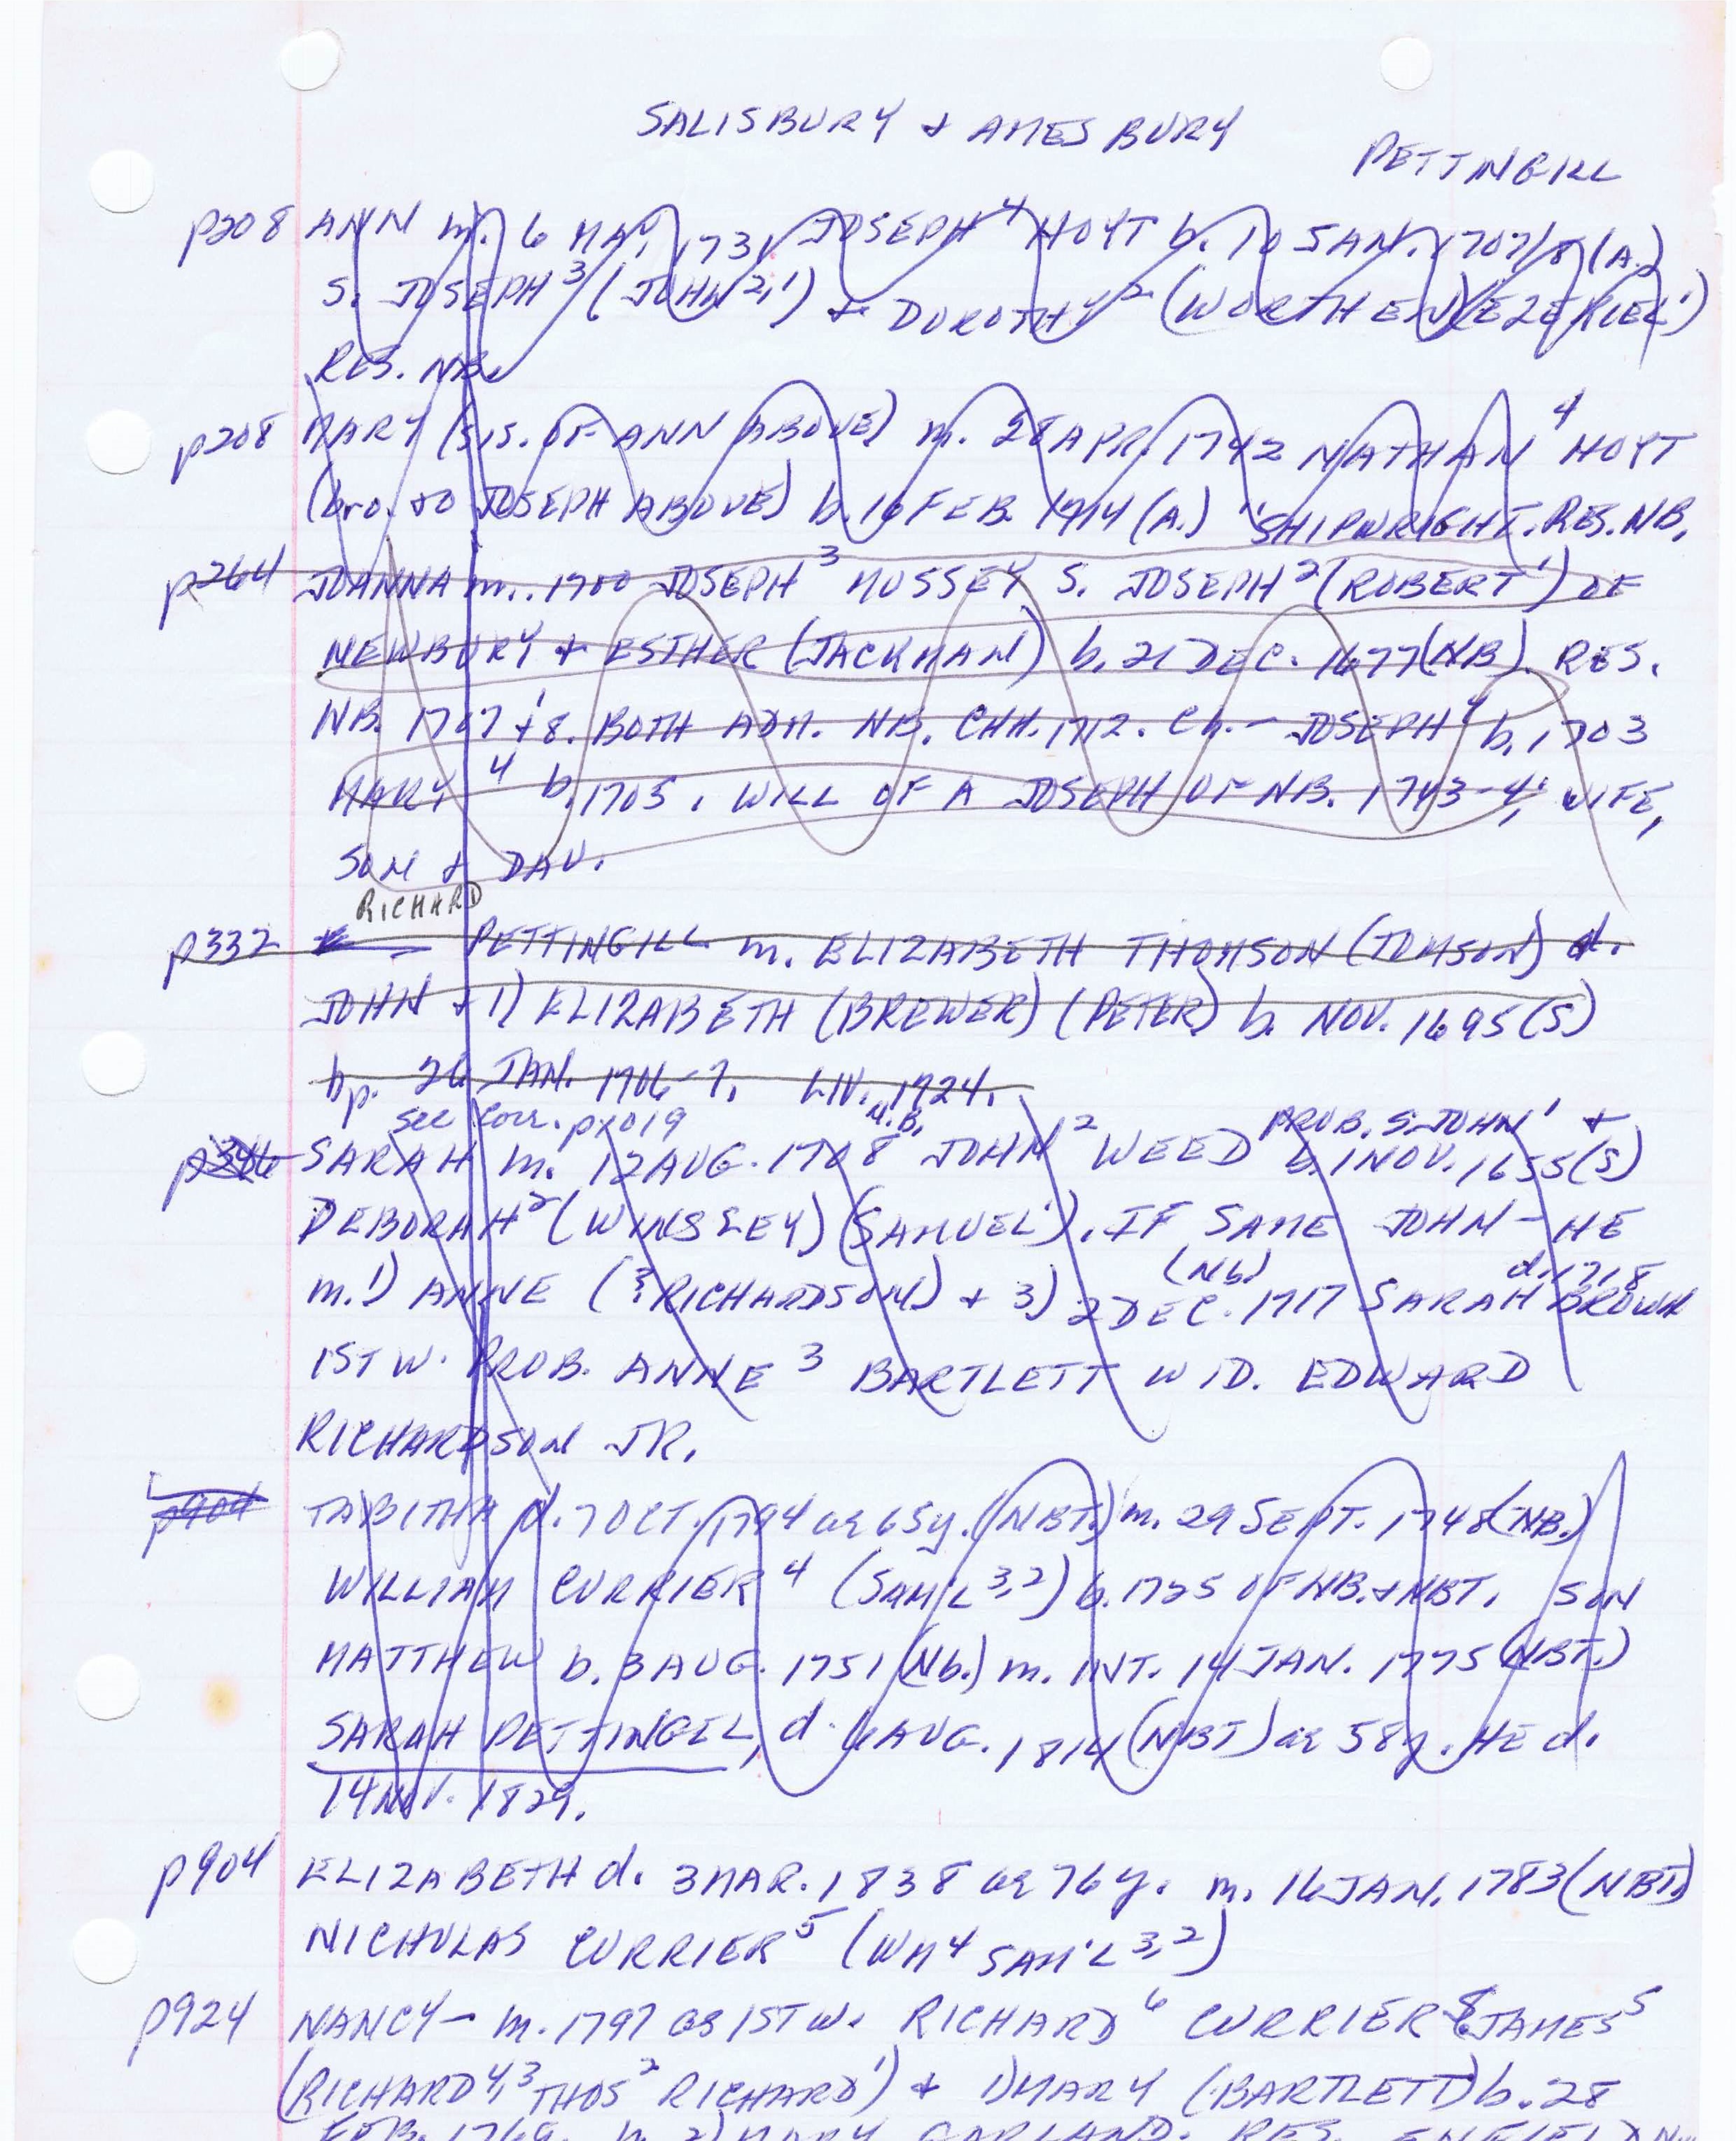 SALISBURY & AMESBURY
PETTINGILL
p208 ANN m. 6 MAY, 1731 JOSEPH 4 HOYT b. 10 JAN. 1707/8 (A.)
S. JOSEPH 3 (JOHN 2,1) & DOROTHY 2 (WORTHEN) (EZEKIEL 1)
RES. NB.
p208 MARY (SIS. OF ANN ABOVE) m. 28 APR. 1742 NATHAN 4 HOYT
(bro. to JOSEPH ABOVE) b. 16 FEB. 1714 (A.) SHIPWRIGHT. RES. NB.
p264 JOANNA m. 1700 JOSEPH 3 MUSSEY S. JOSEPH 2 (ROBERT 1) OF
NEWBURY & ESTHER (JACKMAN) b. 21 DEC. 1677 (NB). RES.
NB. 1707 & 8. BOTH ADM. NB. CHH. 1712. Ch. - JOSEPH 4 b. 1703
MARY 4 b. 1705. WILL OF A JOSEPH OF NB. 1743-4; WIFE,
SON & DAU.
RICHARD
p332 PETTINGILL m. ELIZABETH THOMSON (TOMSON) d.
JOHN & 1) ELIZABETH (BREWER) (PETER) b. NOV. 1695 (S)
bp. 26 JAN. 1706-7. LIV. 1724.
see corr. p1019 N.B. PROB. S. JOHN 1 &
p346 SARAH m. 12 AUG. 1708 JOHN 2 WEED b. 1 NOV. 1655 (S)
DEBORAH 2 (WINSLEY) (SAMUEL 1). IF SAME JOHN - HE
(Nb) d. 1718
m. 1) ANNE (?RICHARDSON) & 3) 2 DEC. 1717 SARAH BROWN
1ST W. PROB. ANNE 3 BARTLETT WID. EDWARD
RICHARDSON JR.
p904 TABITHA d. 7 OCT. 1794 ae 65y. (NBT.) m. 29 SEPT. 1748 (NB.)
WILLIAM CURRIER 4 (SAM'L 3,2) b. 1725 OF NB. & NBT. SON
MATTHEW b. 3 AUG. 1751 (Nb.) m. INT. 14 JAN. 1775 (NBT.)
SARAH PETTINGEL, d. 6 AUG. 1814 (NBT) ae 58y. HE d.
14 NOV. 1829.
p904 ELIZABETH d. 3 MAR. 1838 ae 76y. m. 16 JAN. 1783 (NBT)
NICHOLAS CURRIER 5 (WM 4 SAM'L 3,2)
p924 NANCY - m. 1797 as 1ST W. RICHARD 6 CURRIER S. JAMES 5
(RICHARD 4,3 THOS 2 RICHARD 1) & 1) MARY (BARTLETT) b. 28
FEB. 1769. m. 2) MARY GARLAND. RES. ENFIELD